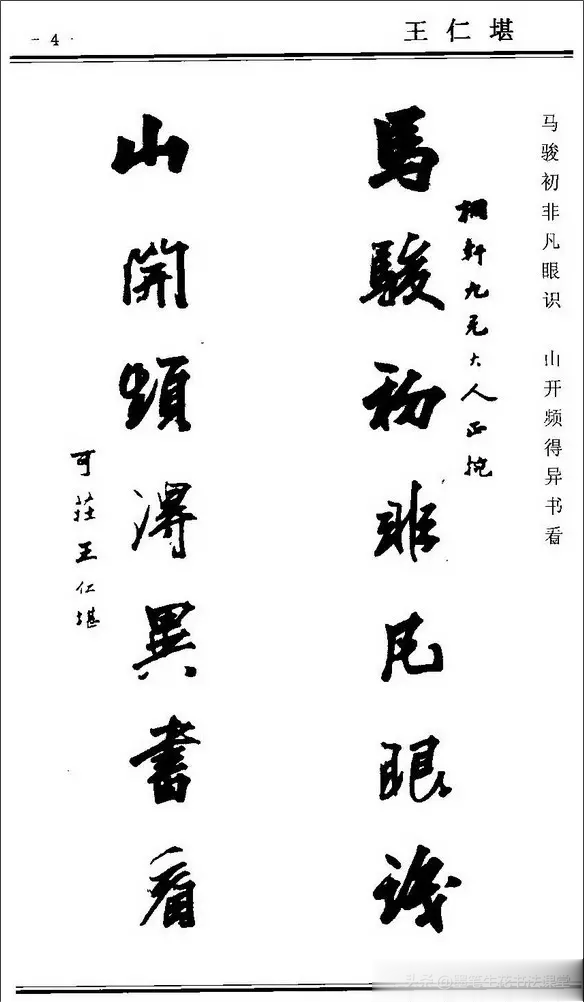 - 4 ·
王仁堪
马骏初非凡眼识 山开频得异书看
馬駿初非凡眼識
桐軒九兄大人正捥
山開頻得異書看
可莊王仁堪
头条